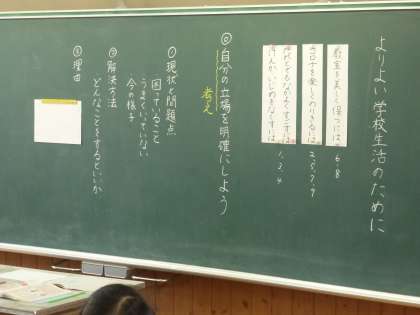 よりよい学校生活のために
教室を美しく保つには 6.8
コロナを楽しくのりきるには 2.5.7.9
1.3.4
◎自分の立場を明確にしよう
考え
① 現状と問題点
困っていること
うまくいっていない
今の様子
② 解決方法
どんなことをするといいか
③ 理由